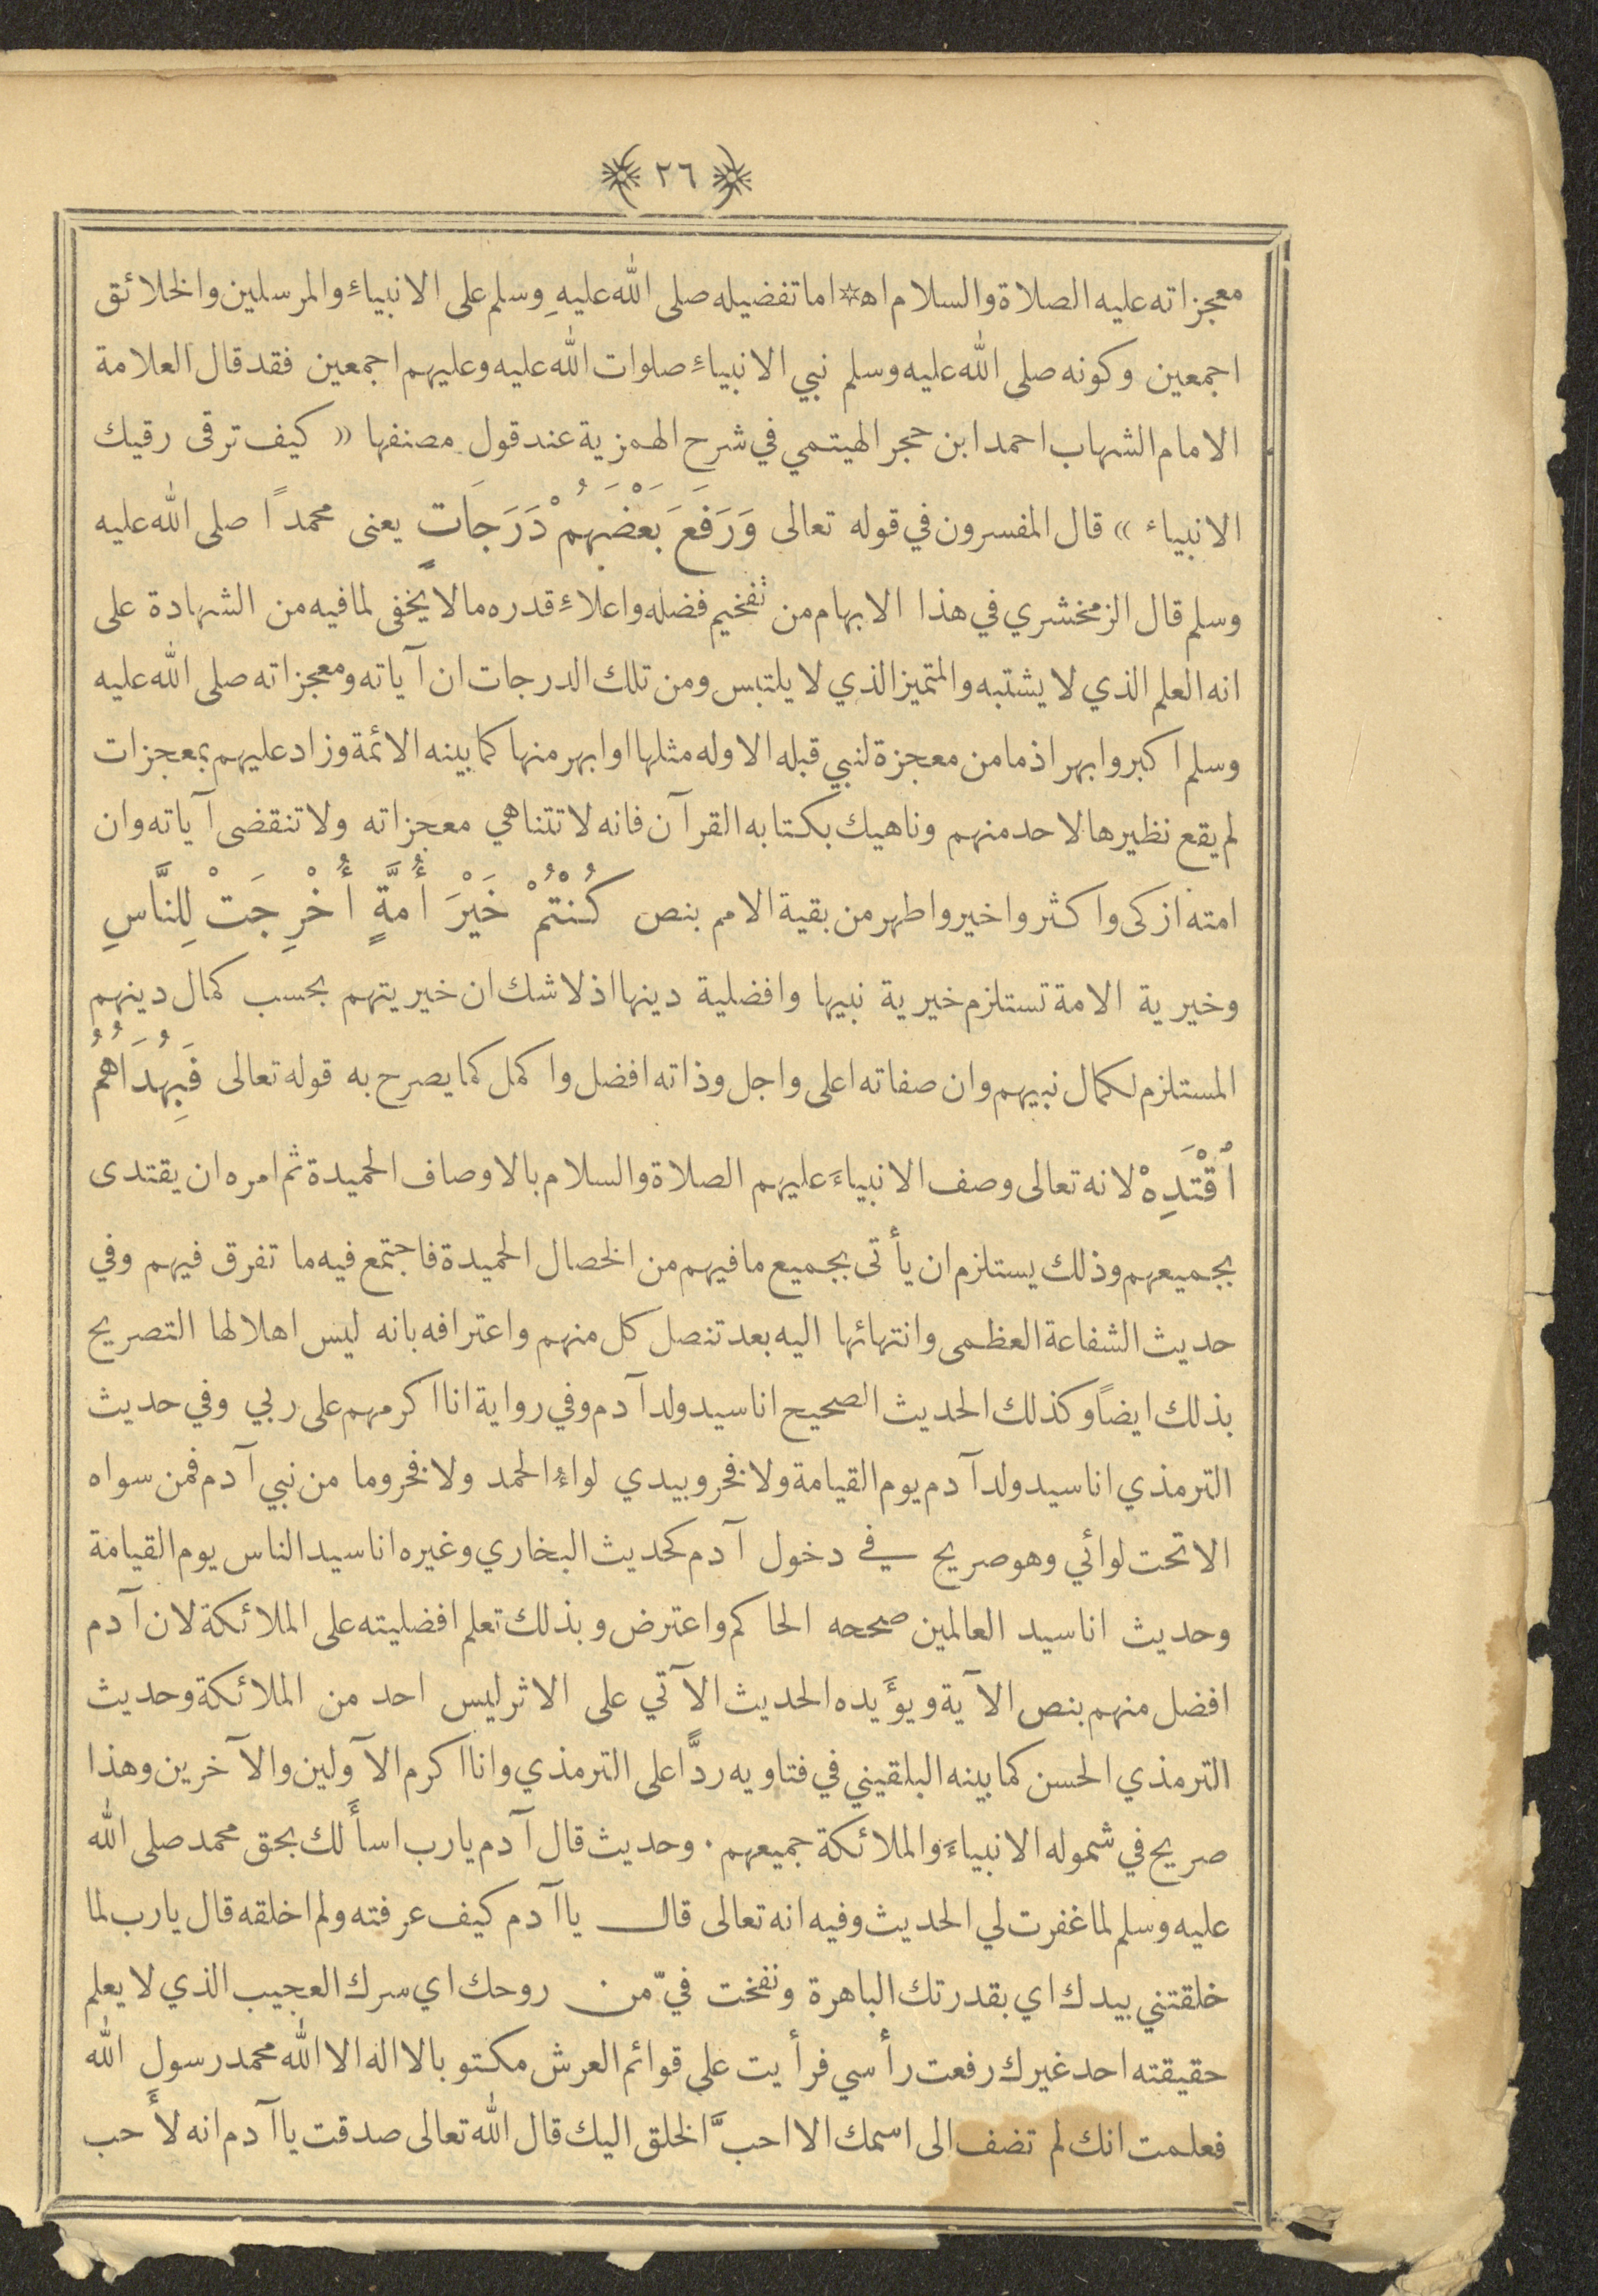 ﴿ ٢٦ ﴾
معجزاته عليه الصلاة والسلام اه* اما تفضيله صلى الله عليهِ وسلم على الانبياءِ والمرسلين والخلائق
اجمعين وكونه صلى الله عليه وسلم نبي الانبياءِ صلوات الله عليه وعليهم اجمعين فقد قال العلامة
الامام الشهاب احمد ابن حجر الهيتمي في شرح الهمزية عند قول مصنفها « كيف ترقى رقيك
الانبياء » قال المفسرون في قوله تعالى وَرَفَعَ بَعْضَهُمْ دَرَجَاتٍ يعنى محمداً صلى الله عليه
وسلم قال الزمخشري في هذا الابهام من تفخيم فضله واعلاءِ قدره ما لا يخفى لما فيه من الشهادة على
انه العلم الذي لا يشتبه والمتميز الذي لا يلتبس ومن تلك الدرجات ان آياته ومعجزاته صلى الله عليه
وسلم اكبر وابهر اذ ما من معجزة لنبي قبله الا وله مثلها او ابهر منها كما بينه الائمة وزاد عليهم بمعجزات
لم يقع نظيرها لاحد منهم وناهيك بكتابه القرآن فانه لا تتناهي معجزاته ولا تنقضى آياته وان
امته ازكى واكثر واخير واطهر من بقية الامم بنص كُنْتُمْ خَيْرَ أُمَّةٍ أُخْرِجَتْ لِلنَّاسِ
وخيرية الامة تستلزم خيرية نبيها وافضلية دينها اذ لا شك ان خيريتهم بحسب كمال دينهم
المستلزم لكمال نبيهم وان صفاته اعلى واجل وذاته افضل واكمل كما يصرح به قوله تعالى فَبِهُدَاهُمُ
ٱقْتَدِهْ لانه تعالى وصف الانبياءَ عليهم الصلاة والسلام بالاوصاف الحميدة ثم امره ان يقتدى
بجميعهم وذلك يستلزم ان يأتى بجميع ما فيهم من الخصال الحميدة فاجتمع فيه ما تفرق فيهم وفي
حديث الشفاعة العظمى وانتهائها اليه بعد تنصل كل منهم واعترافه بانه ليس اهلا لها التصريح
بذلك ايضاً وكذلك الحديث الصحيح انا سيد ولد آدم وفي رواية انا اكرمهم على ربي وفي حديث
الترمذي انا سيد ولد آدم يوم القيامة ولا فخر وبيدي لواءُ الحمد ولا فخر وما من نبي آدم فمن سواه
الا تحت لوائي وهو صريح في دخول آدم كحديث البخاري وغيره انا سيد الناس يوم القيامة
وحديث انا سيد العالمين صححه الحاكم واعترض وبذلك تعلم افضليته على الملائكة لان آدم
افضل منهم بنص الآية ويؤَيده الحديث الآتي على الاثر ليس احد من الملائكة وحديث
الترمذي الحسن كما بينه البلقيني في فتاويه ردًّا على الترمذي وانا اكرم الآولين والآخرين وهذا
صريح في شموله الانبياءَ والملائكة جميعهم . وحديث قال آدم يارب اسأَلك بحق محمد صلى الله
عليه وسلم لما غفرت لي الحديث وفيه انه تعالى قال ياآدم كيف عرفته ولم اخلقه قال يارب لما
خلقتني بيدك اي بقدرتك الباهرة ونفخت فيّ من روحك اي سرك العجيب الذي لا يعلم
حقيقته احد غيرك رفعت رأسي فرأيت على قوائم العرش مكتوبا لا اله الا الله محمد رسول الله
فعلمت انك لم تضف الى اسمك الا احبَّ الخلق اليك قال الله تعالى صدقت ياآدم انه لأَحب